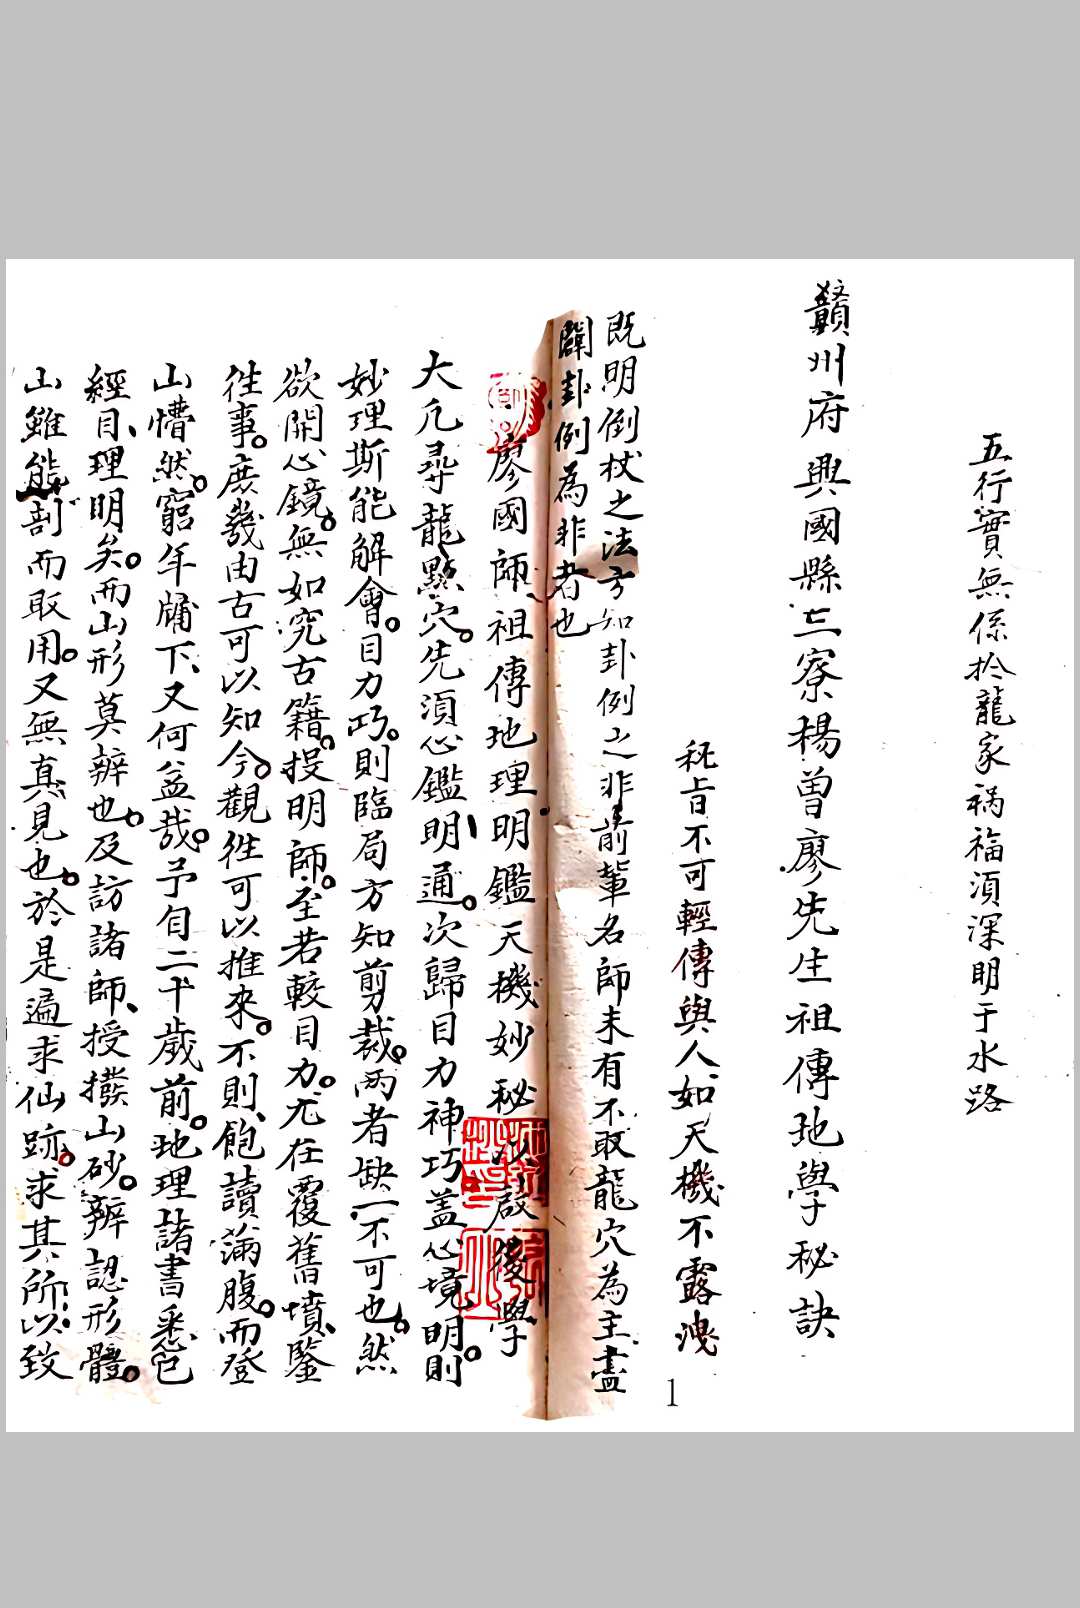 五行實無係扵龍家禍福須深明于水路
贛州府興國縣三寮楊曾廖先生祖傳地學秘訣
秘旨不可輕傳與人如天機不露洩
既明倒杖之法方知卦例之非前輩名師未有不取龍穴為主盡
闢卦例為非者也
廖國師祖傳地理明鑑天機妙秘以啟後學
大凢尋龍點穴。先須心鑑明通。次歸目力神巧盖心境明。則
妙理斯能解會。目力巧。則臨局方知剪裁。两者缺一不可也。然
欲開心鏡。無如究古籍。投明師。至若較目力。尤在覆舊墳、鑒
徃事。庶幾由古可以知今。觀徃可以推來。不則、飽讀滿腹。而登
山懵然。窮年牖下、又何益哉。予自二十歲前。地理諸書悉包
經目、理明矣。而山形莫辨也。及訪諸師、授撥山砂。辨認形體。
山雖能剖而取用。又無真見也。於是遍求仙跡。求其所以致
1